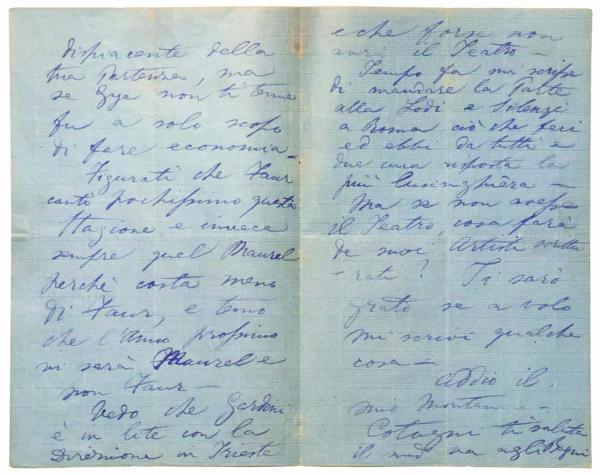 dispiacente della
tua partenza, ma
se Gye non ti tenne
fu a solo scopo
di fare economia –
Figurati che Faur
cantò pochissimo questa
Stagione e invece
sempre quel Maurel
perchè costa meno
di Faur, e temo
che l'Anno prossimo
vi sarà Maurel e
non Faur –
Vedo che Gardini
è in lite con la
Direzione in Trieste
e che forse non
avrà il Teatro –
Tempo fa mi scrisse
di mandare la Patte
alla Lodi e Silenzi
a Roma ciò che feci
ed ebbi da tutti e
due una risposta la
più lusinghièra –
Ma se non avesse
il Teatro, cosa farà
de suoi Artisti scrittu
-rati? Ti sarò
grato se a volo
mi scrivi qualche
cosa –
Addio il
mio
Cotogni ti saluta
il va agli Bagni